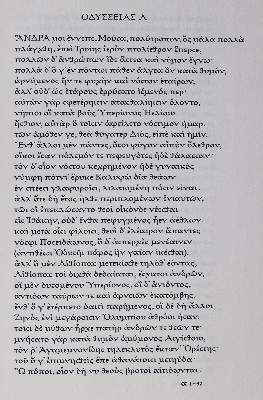 ΟΔΥΣΣΕΙΑΣ Α
ἌΝΔΡΑ μοι ἔννεπε, Μοῦσα, πολύτροπον, ὃς μάλα πολλὰ
πλάγχθη, ἐπεὶ Τροίης ἱερὸν πτολίεθρον ἔπερσε·
πολλῶν δ' ἀνθρώπων ἴδεν ἄστεα καὶ νόον ἔγνω,
πολλὰ δ' ὅ γ' ἐν πόντῳ πάθεν ἄλγεα ὃν κατὰ θυμόν,
ἀρνύμενος ἥν τε ψυχὴν καὶ νόστον ἑταίρων.
ἀλλ' οὐδ' ὣς ἑτάρους ἐρρύσατο ἱέμενός περ·
αὐτῶν γὰρ σφετέρῃσιν ἀτασθαλίῃσιν ὄλοντο,
νήπιοι οἳ κατὰ βοῦς Ὑπερίονος Ἠελίοιο
ἤσθιον, αὐτὰρ ὁ τοῖσιν ἀφείλετο νόστιμον ἦμαρ.
τῶν ἁμόθεν γε, θεὰ θύγατερ Διός, εἰπὲ καὶ ἡμῖν.
Ἔνθ' ἄλλοι μὲν πάντες, ὅσοι φύγον αἰπὺν ὄλεθρον,
οἴκοι ἔσαν πόλεμόν τε πεφευγότες ἠδὲ θάλασσαν·
τὸν δ' οἶον νόστου κεχρημένον ἠδὲ γυναικὸς
νύμφη πότνι' ἔρυκε Καλυψὼ δῖα θεάων
ἐν σπέσσι γλαφυροῖσι, λιλαιομένη πόσιν εἶναι.
ἀλλ' ὅτε δὴ ἔτος ἦλθε περιπλομένων ἐνιαυτῶν,
τῷ οἱ ἐπεκλώσαντο θεοὶ οἶκόνδε νέεσθαι
εἰς Ἰθάκην, οὐδ' ἔνθα πεφυγμένος ἦεν ἀέθλων
καὶ μετὰ οἷσι φίλοισι, θεοὶ δ' ἐλέαιρον ἅπαντες
νόσφι Ποσειδάωνος, ὁ δ' ἀσπερχὲς μενέαινεν
ἀντιθέῳ Ὀδυσῆι πάρος ἣν γαῖαν ἱκέσθαι.
ἀλλ' ὁ μὲν Αἰθίοπας μετεκίαθε τηλόθ' ἐόντας,
Αἰθίοπας τοὶ διχθὰ δεδαίαται, ἔσχατοι ἀνδρῶν,
οἱ μὲν δυσομένου Ὑπερίονος, οἱ δ' ἀνιόντος,
ἀντιόων ταύρων τε καὶ ἀρνειῶν ἑκατόμβης.
ἔνθ' ὅ γ' ἐτέρπετο δαιτὶ παρήμενος, οἱ δὲ δὴ ἄλλοι
Ζηνὸς ἐνὶ μεγάροισιν Ὀλυμπίου ἁθρόοι ἦσαν.
τοῖσι δὲ μύθων ἦρχε πατὴρ ἀνδρῶν τε θεῶν τε·
μνήσατο γὰρ κατὰ θυμὸν ἀμύμονος Αἰγίσθοιο,
τόν ῥ' Ἀγαμεμνονίδης τηλεκλυτὸς ἔκταν' Ὀρέστης·
τοῦ ὅ γ' ἐπιμνησθεὶς ἔπε' ἀθανάτοισι μετηύδα·
"Ὢ πόποι, οἷον δή νυ θεοὺς βροτοὶ αἰτιόωνται.
α 1–32